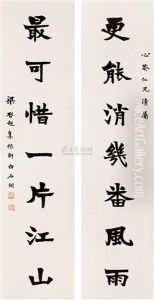 心裁仁兄清屬
更能消幾番風雨
最可惜一片江山
梁啓超集稼軒白石詞